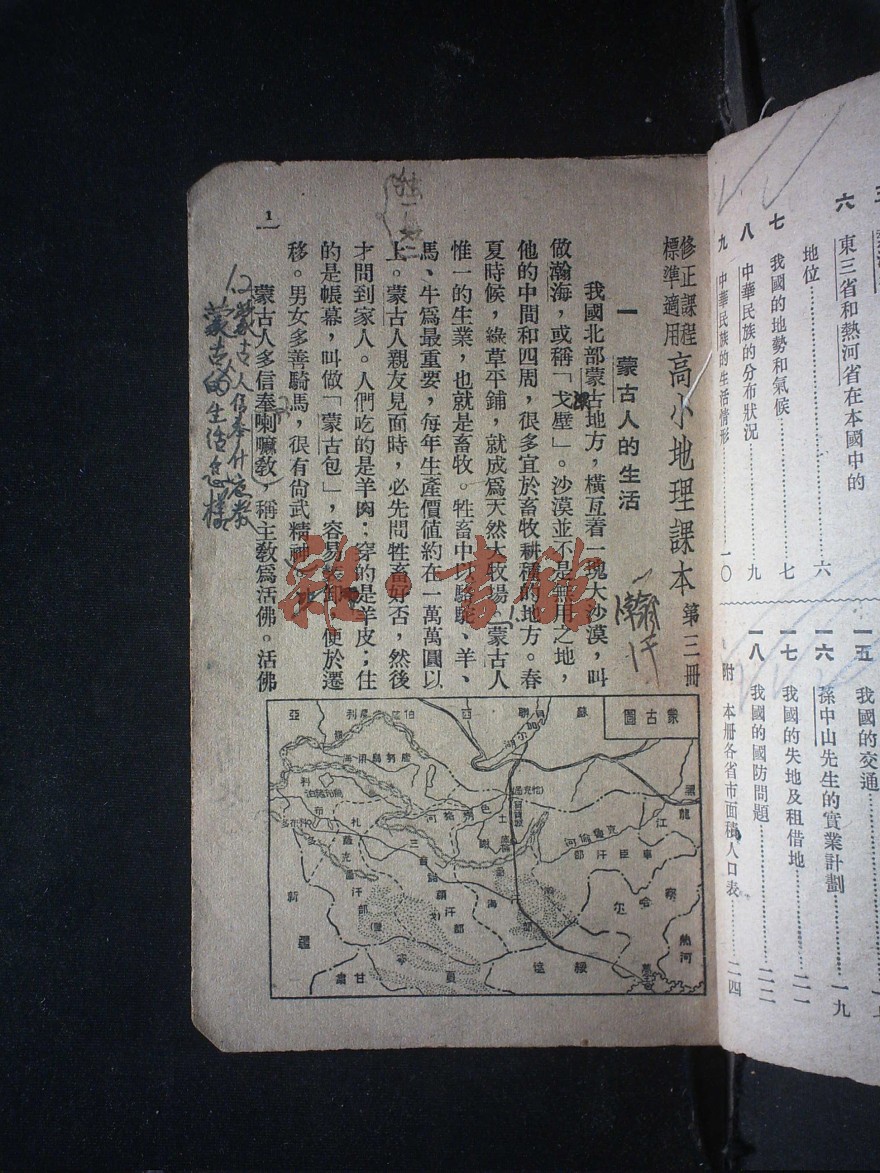 六　東三省和熱河省在本國中的
地位……六
七　我國的地勢和氣候……七
八　中華民族的分布狀況……九
九　中華民族的生活情形……一〇
一五　我國的交通
一六　孫中山先生的實業計劃……一九
一七　我國的失地及租借地……二一
一八　我國的國防問題……二二
附　本册各省市面積人口表……二四
修正課程
標準適用
高小地理課本　第三册
一　蒙古人的生活
我國北部蒙古地方，橫亙着一塊大沙漠，叫
做瀚海，或稱「戈壁」。沙漠並不是無用之地，
他的中間和四周，很多宜於畜牧耕種的地方。春
夏時候，綠草平鋪，就成爲天然大牧場。蒙古人
惟一的生業，也就是畜牧。牲畜中以駱駝、羊、
馬、牛爲最重要，每年生產價值約在一萬萬圓以
上。蒙古人親友見面時，必先問牲畜好否，然後
才問到家人。人們吃的是羊肉；穿的是羊皮；住
的是帳幕，叫做「蒙古包」，容易裝卸，便於遷
移。男女多善騎馬，很有尚武精神。
蒙古人多信奉喇嘛教，稱主教爲活佛。活佛
1
蒙古人信奉什麽教
蒙古人的生活怎樣
瀚
蒙古圖
蘇
聯
西
伯
利
亞
黑
龍
江
車臣汗部
克魯倫河
土謝圖汗部
三音諾顏汗部
札薩克圖汗部
科布多
唐努烏梁海
新
疆
甘肅
寧夏
綏遠
察
哈
尔
熱河
雜·書館